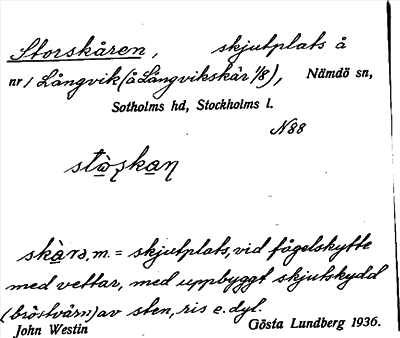 Storskåren, skjutplats å
nr 1 Långvik (å Långvikskär 1/8), Nämdö sn,
Sotholms hd, Stockholms l.
N88
skåra, m. = skjutplats, vid fågelskytte
med vettar, med uppbyggt skjutskydd
(bröstvärn) av sten, ris e. dyl.
John Westin Gösta Lundberg 1936.